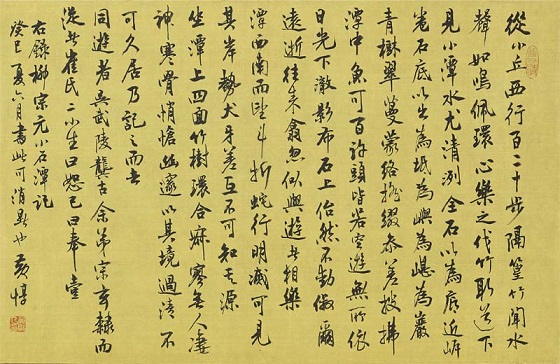 從小丘西行百二十步隔篁竹聞水
聲如鳴佩環心樂之伐竹取道下
見小潭水尤清洌全石以為底近岸
卷石底以出為坻為嶼為嵁為巖
青樹翠蔓蒙絡搖綴參差披拂
潭中魚可百許頭皆若空遊無所依
日光下澈影布石上佁然不動俶爾
遠逝往來翕忽似與遊者相樂
潭西南而望斗折蛇行明滅可見
其岸勢犬牙差互不可知其源
坐潭上四面竹樹環合寂寥無人凄
神寒骨悄愴幽邃以其境過清不
可久居乃記之而去
同遊者吳武陵龔古余弟宗玄隸而
從者崔氏二小生曰恕己曰奉壹
右錄柳宗元小石潭記
癸巳夏六月書此可消暑也 黃惇